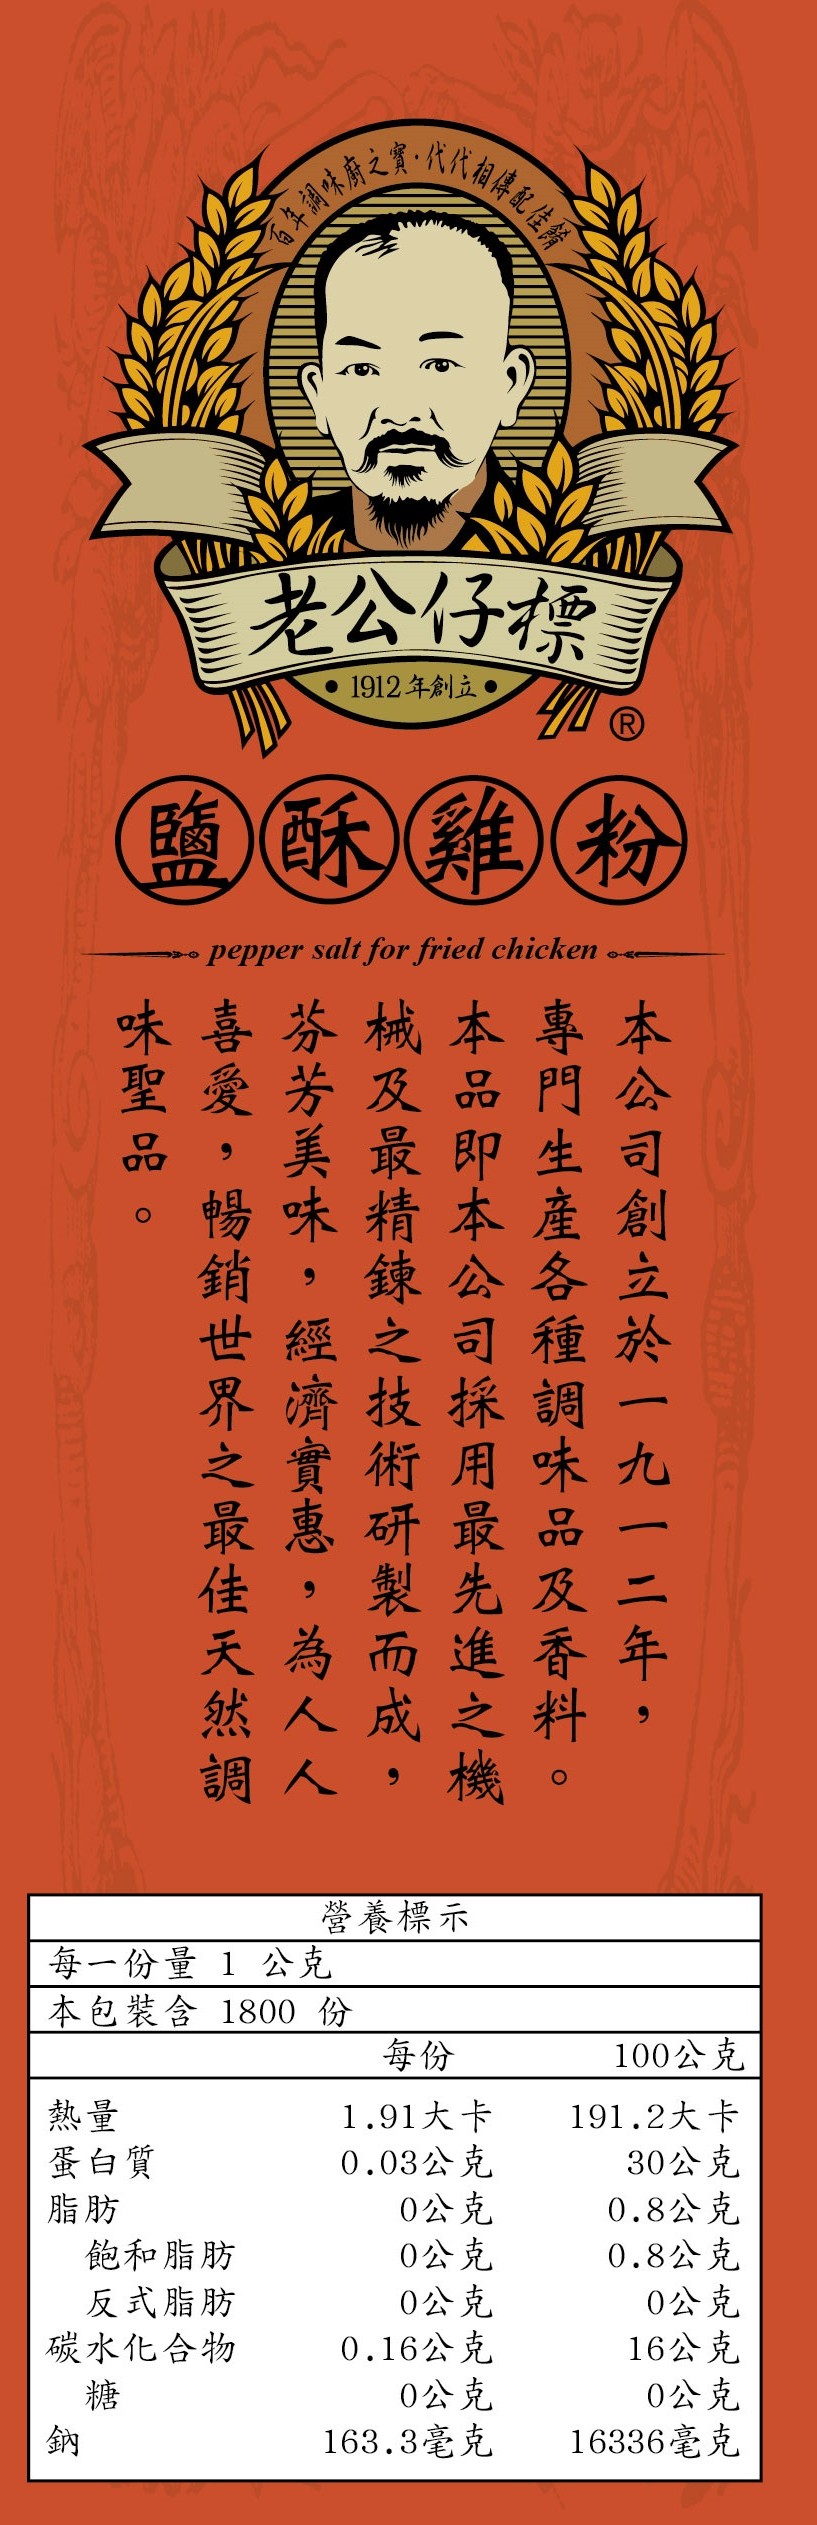 百年調味廚之寶·代代相傳配佳餚
老公仔標
•1912年創立•
®
鹽酥雞粉
pepper salt for fried chicken
本公司創立於一九一二年，
專門生產各種調味品及香料。
本品即本公司採用最先進之機
械及最精鍊之技術研製而成，
芬芳美味，經濟實惠，為人人
喜愛，暢銷世界之最佳天然調
味聖品。
營養標示
每一份量 1 公克
本包裝含 1800 份
每份 100公克
熱量 1.91大卡 191.2大卡
蛋白質 0.03公克 30公克
脂肪 0公克 0.8公克
飽和脂肪 0公克 0.8公克
反式脂肪 0公克 0公克
碳水化合物 0.16公克 16公克
糖 0公克 0公克
鈉 163.3毫克 16336毫克